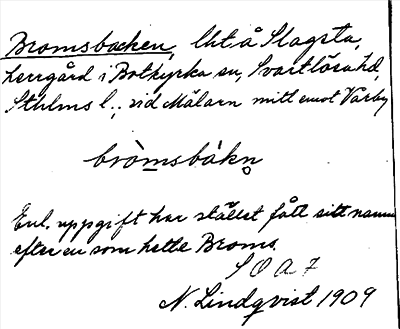 Bromsbacken, lht å Slagsta,
herrgård i Botkyrka sn, Svartlösa hd,
Sthlms l., vid Mälarn mitt emot Vårby
bròmsbákn
Enl. uppgift har stället fått sitt namn
efter en som hette Broms.
S O A 7
N. Lindqvist 1909